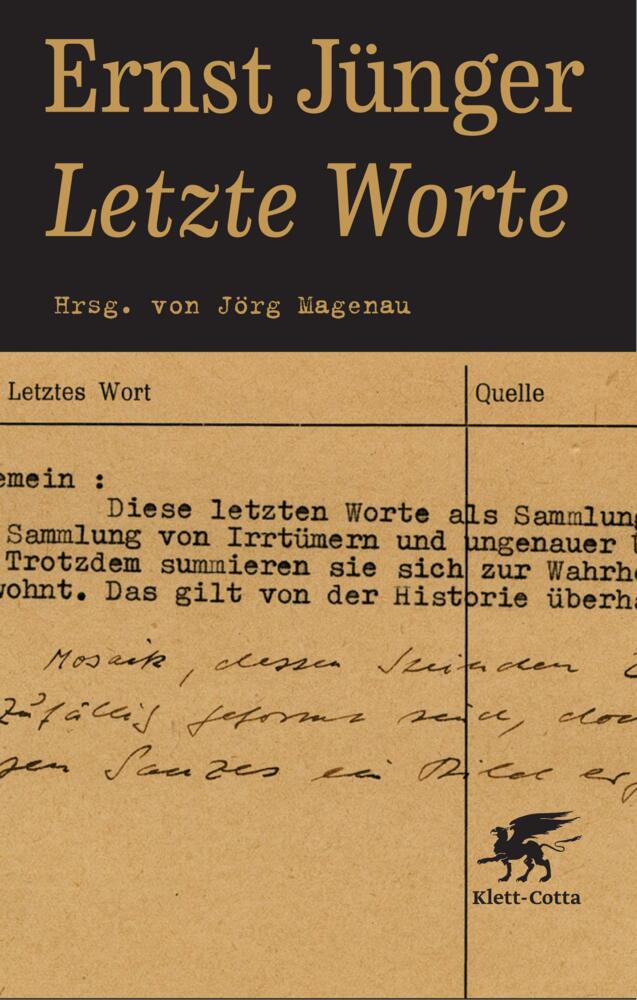 Ernst Jünger
Letzte Worte
Hrsg. von Jörg Magenau
Letztes Wort
Quelle
emein :
Diese letzten Worte als Sammlung
Sammlung von Irrtümern und ungenauer
Trotzdem summieren sie sich zur Wahrhe
wohnt. Das gilt von der Historie überha
Mosaik, dessen Steinchen
zufällig geformt sind, doch
Ganzes ein Bild
Klett-Cotta